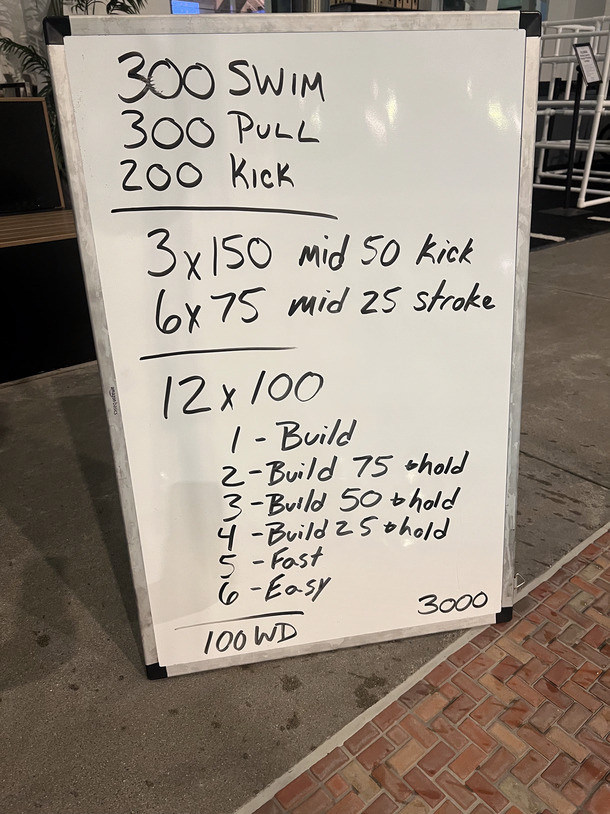 300 SWIM
300 PULL
200 Kick
3x150 mid 50 kick
6x75 mid 25 stroke
12x100
1 - Build
2 - Build 75 + hold
3 - Build 50 + hold
4 - Build 25 + hold
5 - Fast
6 - Easy
3000
100 WD